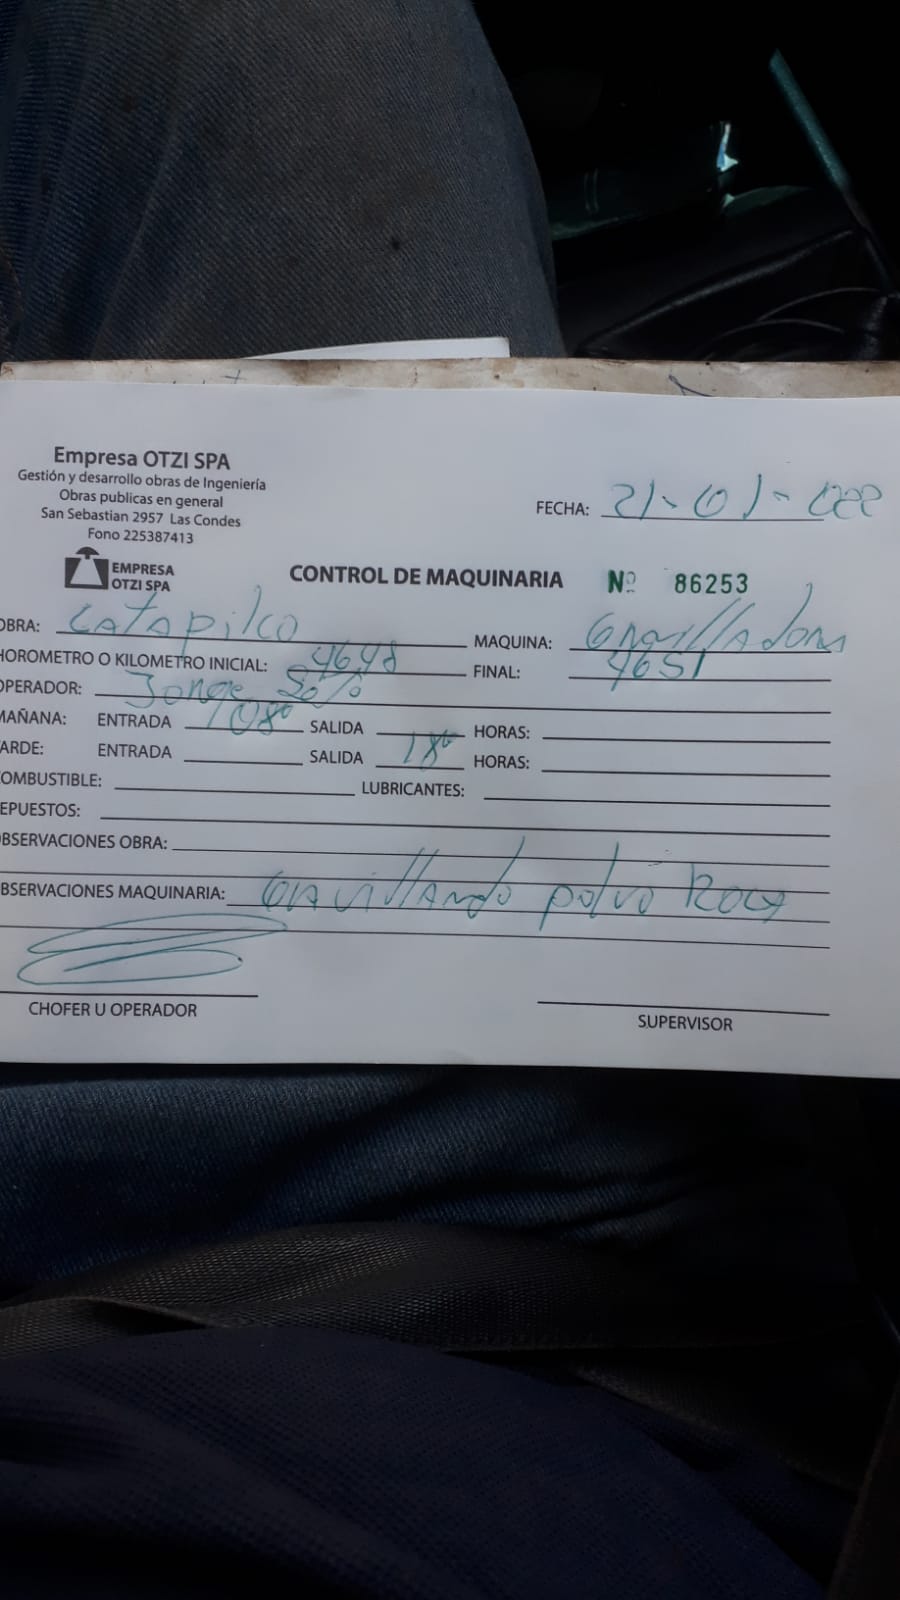 Empresa OTZI SPA
Gestión y desarrollo obras de Ingeniería
Obras publicas en general
San Sebastian 2957 Las Condes
Fono 225387413
EMPRESA
OTZI SPA
FECHA: 21-01-022
CONTROL DE MAQUINARIA Nº 86253
OBRA: Catapilco MAQUINA: Gravilladora
HOROMETRO O KILOMETRO INICIAL: 4648 FINAL: 4651
OPERADOR: Jorge
MAÑANA: ENTRADA 08⁰⁰ SALIDA HORAS:
ARDE: ENTRADA SALIDA 18⁰⁰ HORAS:
OMBUSTIBLE: LUBRICANTES:
EPUESTOS:
OBSERVACIONES OBRA:
OBSERVACIONES MAQUINARIA: Gravillando polvo Roca
CHOFER U OPERADOR
SUPERVISOR